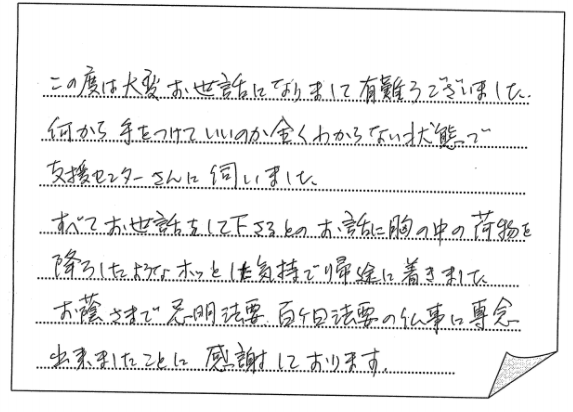 この度は大変お世話になりまして有難うございました.
何から手をつけていいのか全くわからない状態で
支援センターさんに伺いました.
すべてお世話をして下さるとのお話に胸の中の荷物を
降ろしたようなホッとした気持で帰途に着きました
お蔭さまで忌明法要 百ケ日法要の仏事に専念
出来ましたことに感謝しております.